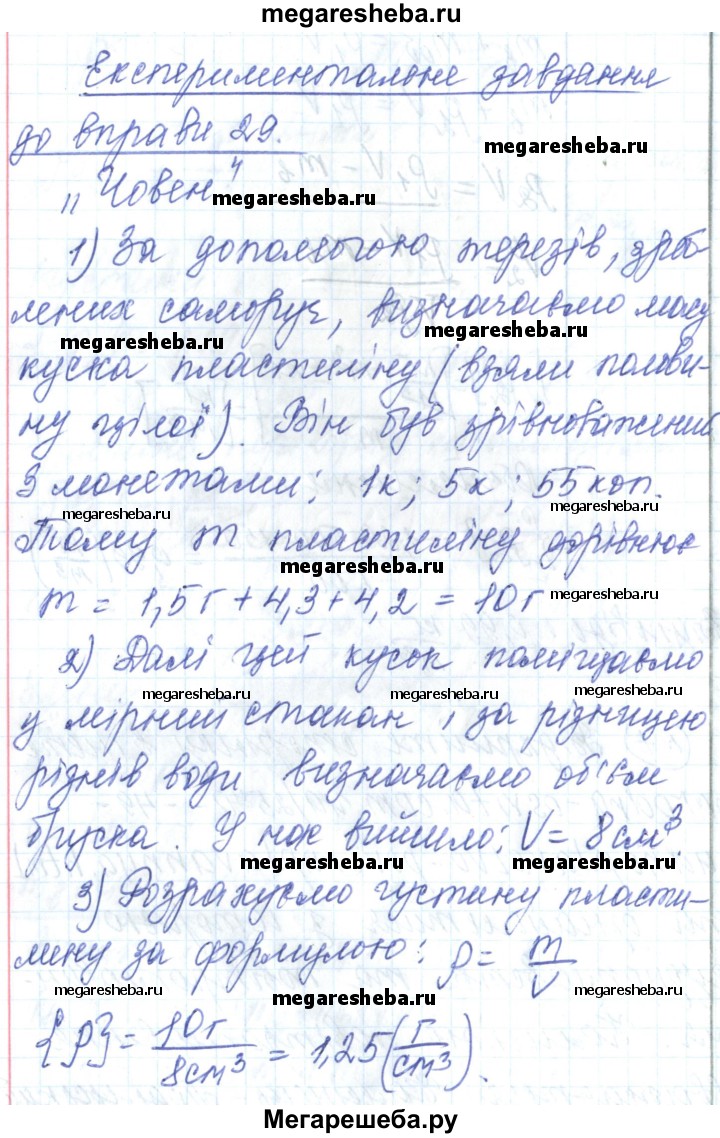 megaresheba.ru
Експериментальне завдання
до вправи 29.
megaresheba.ru
„Човен"
megaresheba.ru
1) За допомогою терезів, зроб-
лених саморуч, визначаємо масу
megaresheba.ru
megaresheba.ru
куска пластиліну (взяли полови-
ну цілої). Він був зрівноважений
З монетами: 1к; 5к; 55коп.
megaresheba.ru
megaresheba.ru
Тому m пластиліну дорівнює
megaresheba.ru
m = 1,5г + 4,3 + 4,2 = 10г
megaresheba.ru
2) Далі цей кусок поміщаємо
megaresheba.ru
megaresheba.ru
у мірний стакан, за різницею
різнів води визначаємо об'єм
бруска. У нас вийшло: V = 8см³.
megaresheba.ru
megaresheba.ru
3) Розрахуємо густину пласти-
ліну за формулою: ρ = m/V
megaresheba.ru
megaresheba.ru
megaresheba.ru
{ρ} = 10г/8см³ = 1,25 (г/см³).
Мегарешеба.ру